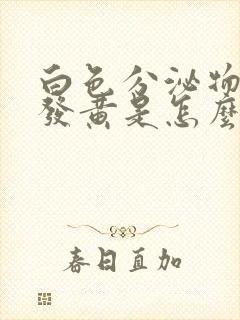 白色分泌物
發黃是怎麼
春日直加